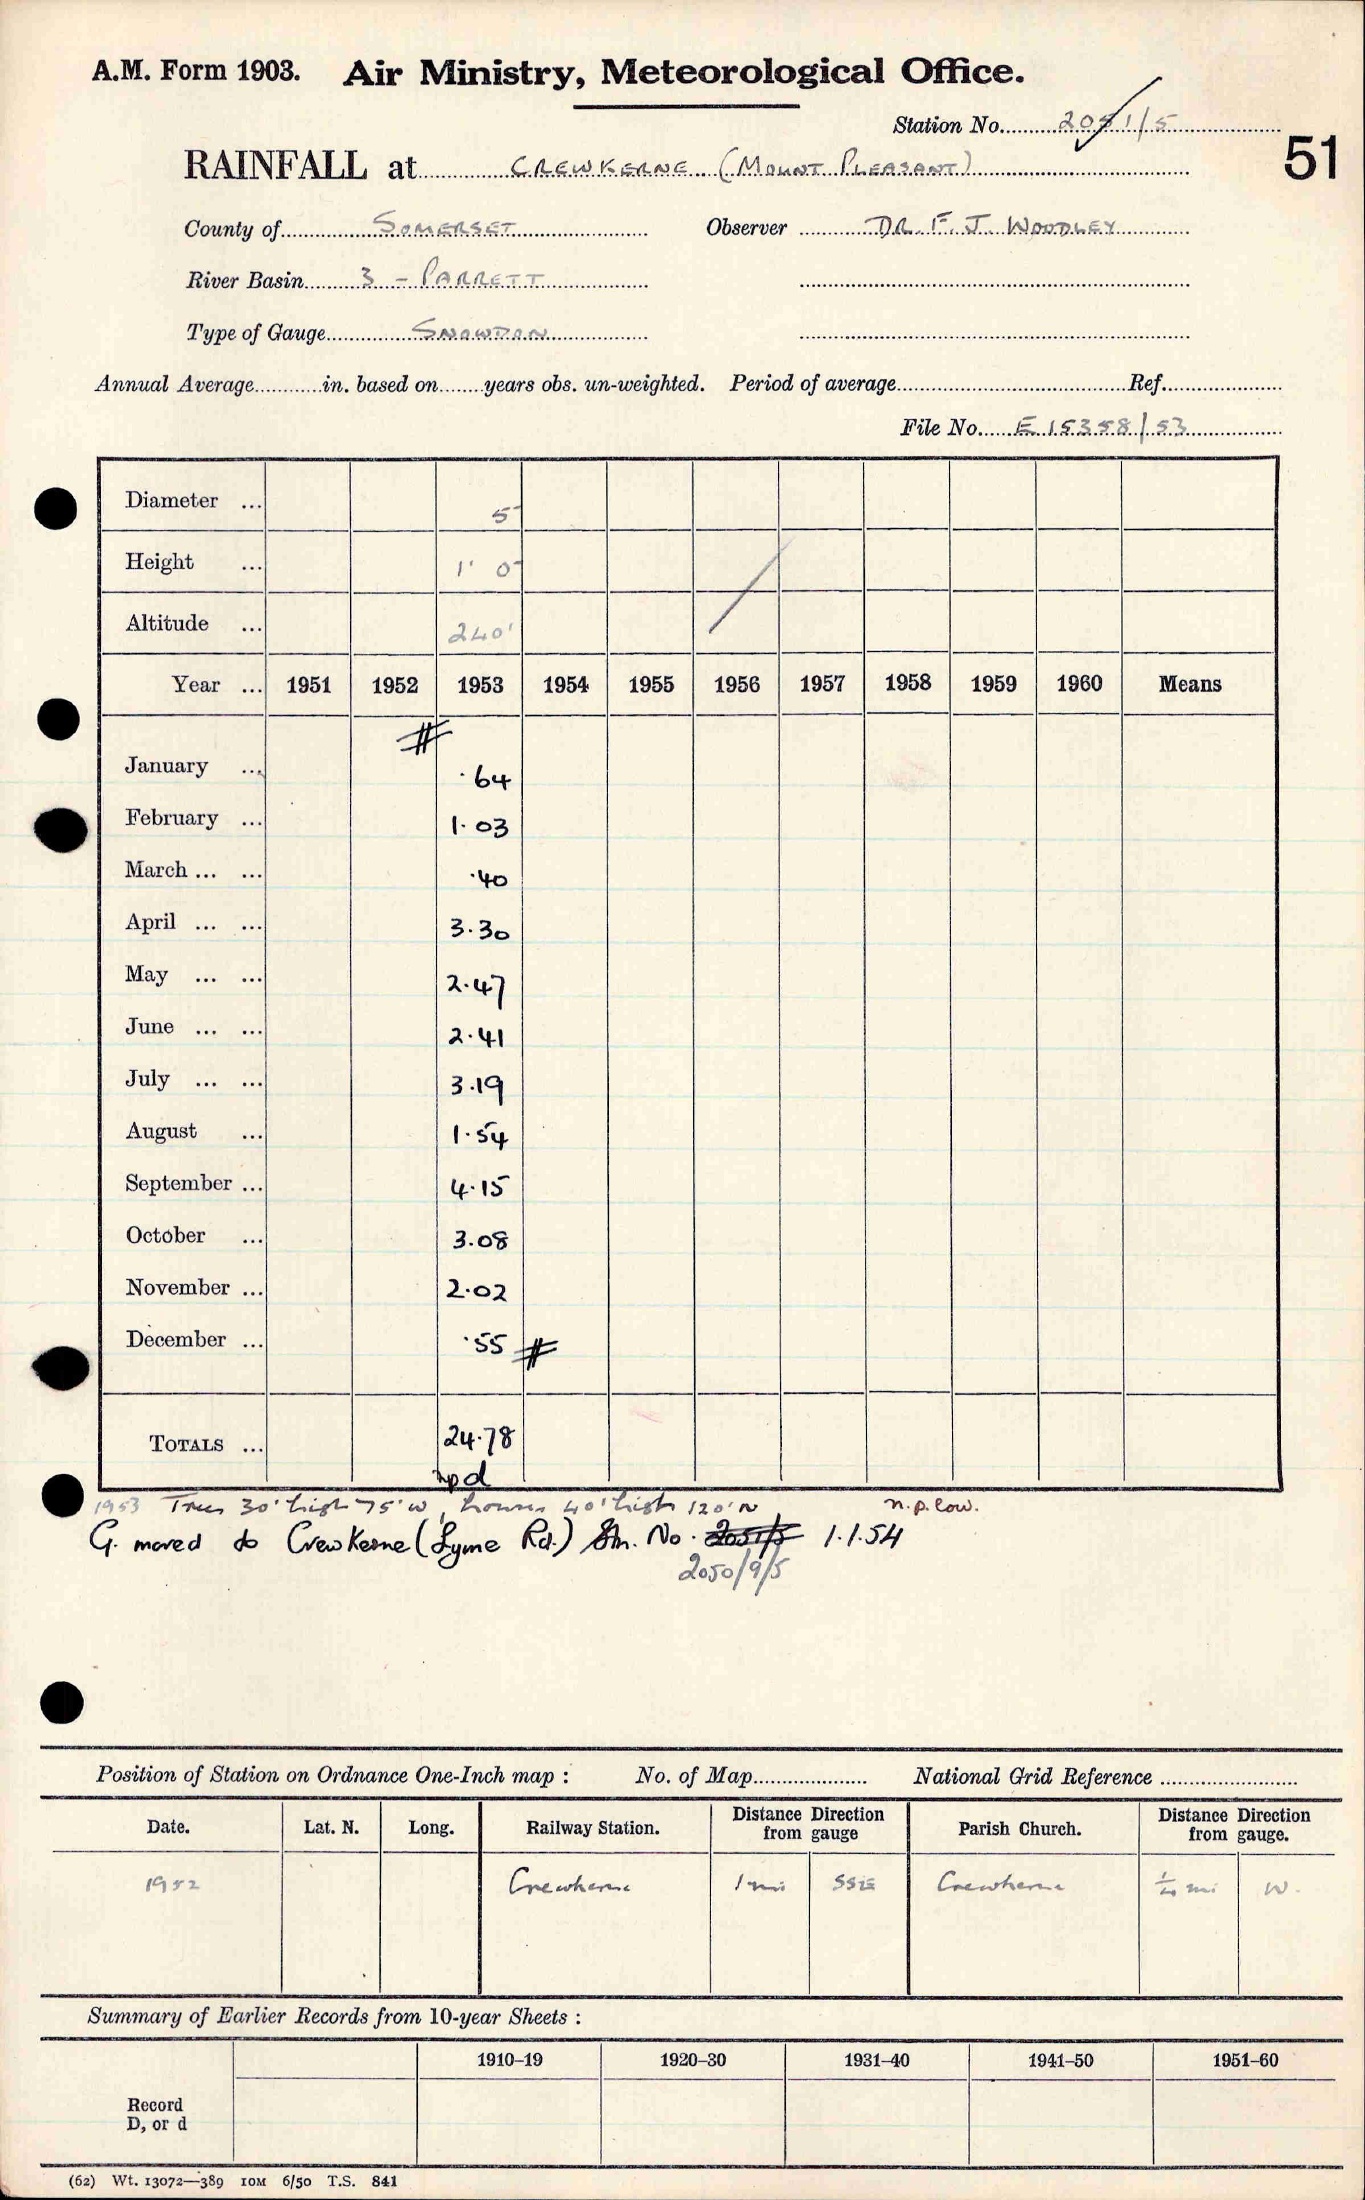 A.M. Form 1903. Air Ministry, Meteorological Office.
Station No. 2051/5
51
RAINFALL at CREWKERNE (MOUNT PLEASANT)
County of SOMERSET Observer DR. F. J. WOODLEY
River Basin 3 - PARRETT
Type of Gauge SNOWDON
Annual Average in. based on years obs. un-weighted. Period of average Ref.
File No. E 15358/53
Diameter ... 5
Height ... 1' 0
Altitude ... 240'
Year ... 1951 1952 1953 1954 1955 1956 1957 1958 1959 1960 Means
January ... ·64
February ... 1·03
March ... ... ·40
April ... ... 3·30
May ... ... 2·47
June ... ... 2·41
July ... ... 3·19
August ... 1·54
September ... 4·15
October ... 3.08
November ... 2·02
December ... ·55
TOTALS ... 24·78
npd
1953 Trees 30' high 75' W, houses 40' high 120' N n.p. low.
G. moved to Crewkerne (Lyme Rd.) Stn. No. 2051/5 1.1.54
2050/9/5
Position of Station on Ordnance One-Inch map : No. of Map National Grid Reference
Date. Lat. N. Long. Railway Station. Distance Direction from gauge Parish Church. Distance Direction from gauge.
1952 Crewkerne 1 mi SSE Crewkerne ¼ mi W.
Summary of Earlier Records from 10-year Sheets :
1910–19 1920–30 1931–40 1941–50 1951–60
Record
D, or d
(62) Wt. 13072—389 10M 6/50 T.S. 841